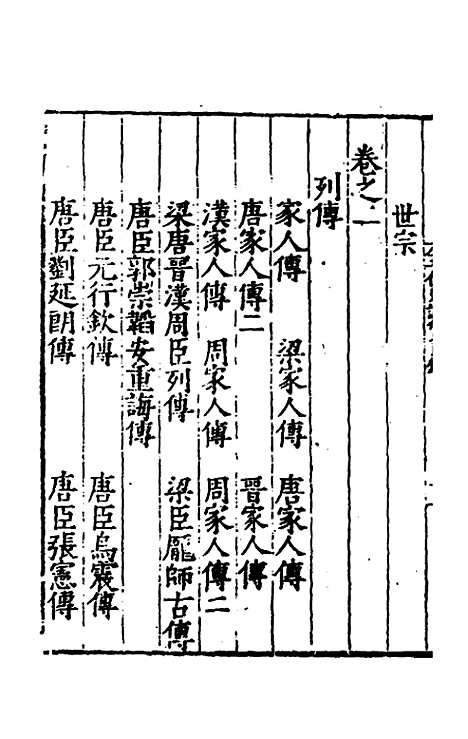 世宗
卷之二
列傳
家人傳 梁家人傳 唐家人傳
唐家人傳二 晉家人傳
漢家人傳 周家人傳 周家人傳二
梁唐晉漢周臣列傳 梁臣龐師古傳
唐臣郭崇韜安重誨傳
唐臣元行欽傳 唐臣烏震傳
唐臣劉延朗傳 唐臣張憲傳